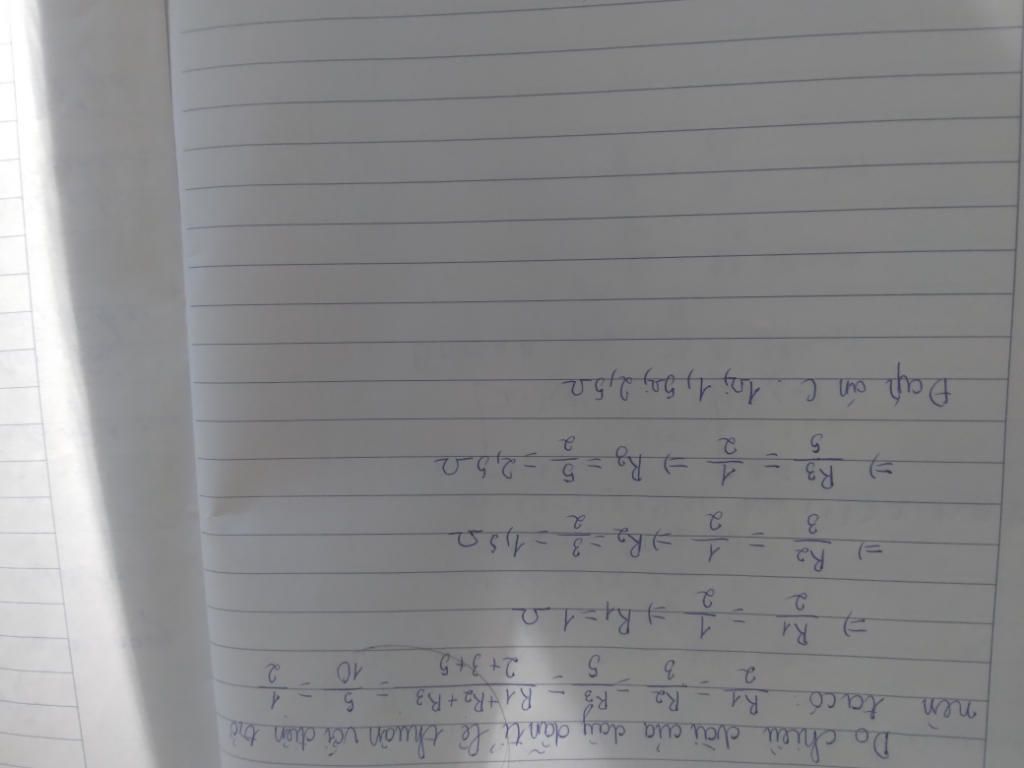 Do chiều dài của dây dẫn tỉ lệ thuận với điện trở
nên ta có: R1/2 = R2/3 = R3/5 = R1+R2+R3/2+3+5 = 5/10 = 1/2
=> R1/2 = 1/2 => R1 = 1Ω
=> R2/3 = 1/2 => R2 = 3/2 = 1,5Ω
=> R3/5 = 1/2 => R3 = 5/2 = 2,5Ω
Đáp án C. 1Ω; 1,5Ω; 2,5Ω